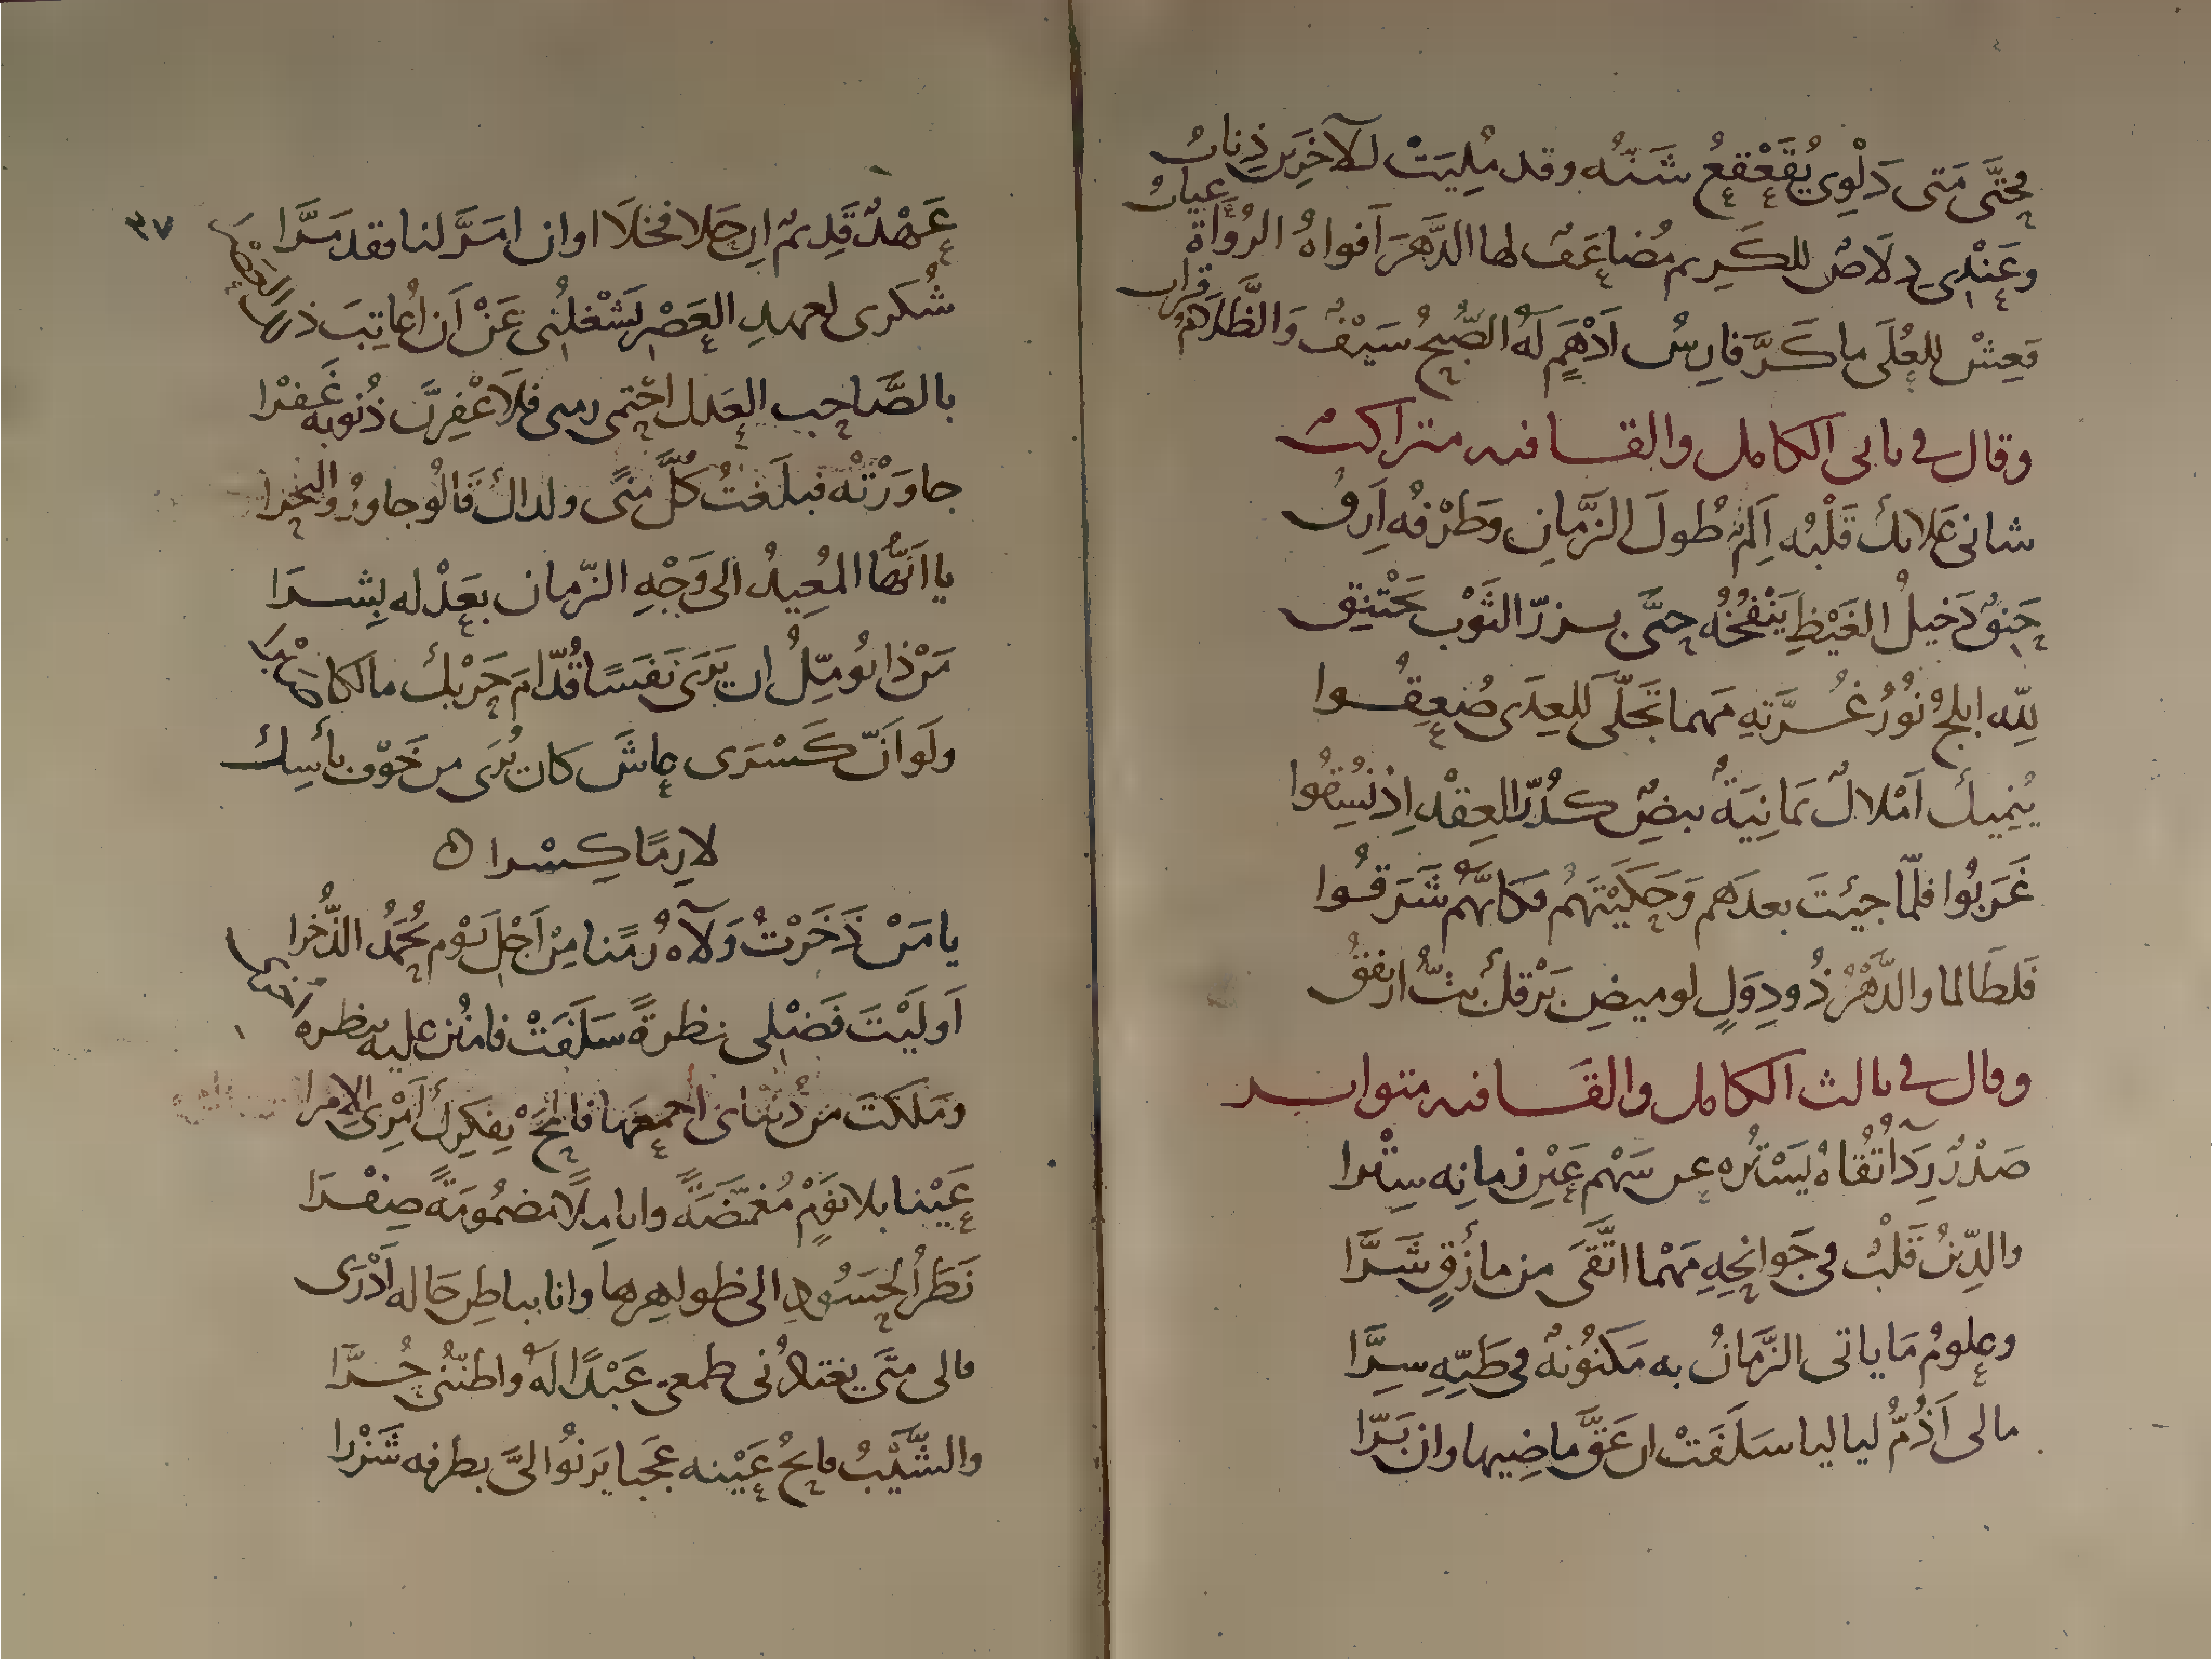 مُحتَّى مَتى دَلْوِى يُقَعْقِعُ شَنُّه وقد مُلِيَتْ للآخَرِين ذِنابُ
وعَنْدِى دِلَاصٌ للكَرِيم مُضاعَفٌ لها الدَّهرَ أفواهُ الرُوَاةِ عيابُ
فعِشْ للعُلَى ما كَرَّ فارِسُ اَدْهَمٍ لَهُ الصُّبحُ سَيْفٌ وَالظَّلامُ قرابُ
وقال في ثانى الكامل والقافيه متراكب
شانى عَلائك قَلْبُه اَلِمٌ طُولَ الزَّمانِ وطَرْفُه اَرِقُ
حَنِقٌ دَخيلُ الغَيْظِ يَنْفُخُه حتَّى بزرّ الثَوْب يَخْتنِق
لِلّه ابلجُ نُورُ غُرَّتهِ مَهما تَجَلّى للعِدَى صُعِقُوا
يُنمِيك اَمْلاكٌ يَمانِيَةٌ بيضٌ كدُرّ العِقْد اِذ نُسِقُوا
غَرَبُوا فلمّا جيئتَ بعدَهم وَحَكَيْتَهُم فكانّهُم شَرَقُوا
فَلطَالما والدَّهْرُ ذُو دِوَلٍ لوميضِ بَرْقك بتُّ ارتفقُ
وقال في ثالث الكامل والقافيه متواتر
صَدْرٌ رِدَآتُقَاهُ يَسْتُره عن سَهْم عَيْنِ زمانِه سِتْرا
والدِّينُ قَلْبٌ فى جَوانِحِهِ مَهْما اتَّقَى من مأزقٍ شَرَّا
وعلومُ مَا ياتى الزَّمانُ به مَكنُونُهٌ فى طَيِّهِ سِرَّا
مالى اَذُمُّ لياليا سَلَفَتْ ان عَقَّ ماضِيها وان بَرّا
٣٧
عَهْدٌ قَدِيمٌ اِن حَلا فخلَا او ان امَرَّ لنا فقد مَرَّا
شُكرى لعهدِ العَصْر يَشْغلُنِى عَنْ اَن اُعاتِبَ ذلك العَصْرَا
بالصَّاحِب العَدل احْتمى زمنى فلَاَغْفِرَنَّ ذُنُوبه غَفْرا
جاوَرْتُه فبلَغتُ كلَّ منًى ولداك قَالُو جاورُوا البَحْرا
يا اَيُّهَا المُعِيدُ الى وَجْهِ الزّمان بعَدْله بِشرَا
مَرْ ذا يُومّلُ ان يَرَى نَفَسًا قُدّامَ حَرْبك مالكا صَبْرَا
ولَو اَنّ كَسْرَى عاشَ كان يُرَى من خَوْف بأسِك
لازِمًا كِسْرا
يا مَنْ ذَخَرْتُ وَلَآه زُمًنا مِنْ اَجْلِ يَوْمٍ يُحْمَدُ الذُّخْرا
اَولَيْتَ فَضْلى نظرةً سَلَفَتْ فامنُن عليه بنظره اُخرى
ومَلكتَ من دُنياى اَجمعَها فالمَحْ بِفكِرك اَمْرِىَ الإمرا
عَيْنا بلا نَوْمٍ مُغمَّضَةً وانامِلًا مضمُومَةً صِفْرَا
نَظَرُ الحَسُودِ الى ظواهِرها وانا بباطِن حَاله اَدْرَى
مالى متَى يقتادُنى طمعى عَبْدًا لَهُ واظنّنُى حُرَّا
والشَّيْبُ فاتحُ عَيْنه عجَبا يَرنُوا الىَّ بطرفه شَزْرا